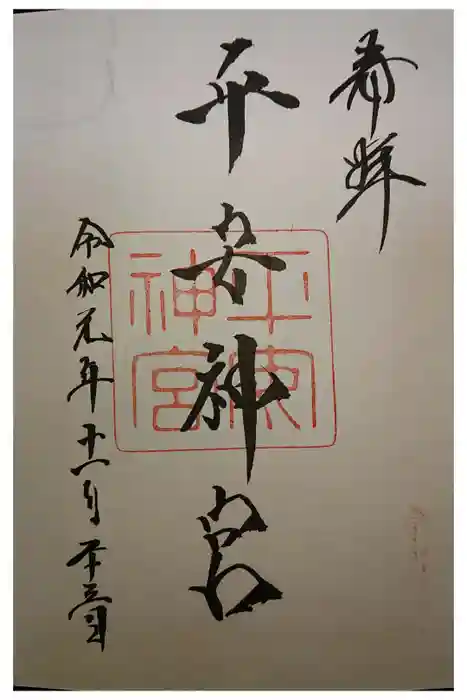 奉拝
平安神宮
平安
神宮
令和元年十一月二十三日